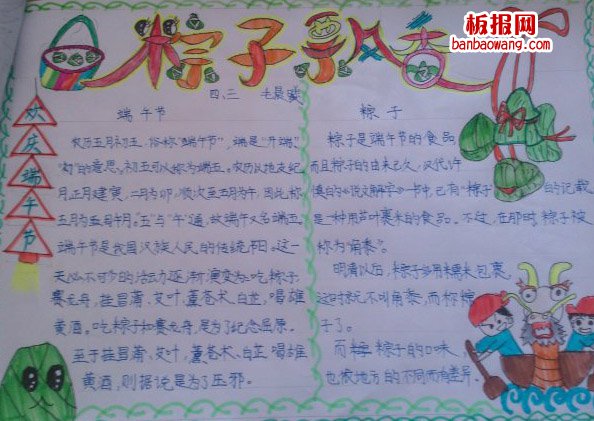 板报网
banbaowang.com
粽子飘香
四、三 毛晨
欢庆端午节
端午节
农历五月初五,俗称"端午节",端是"开端"
"初"的意思。初五可以称为端五。农历以地支纪
月正月建寅,二月为卯,顺次至五月为午,因此称
五月为午月。"五"与"午"通,故端午又名端五。
端午节是我国汉族人民的传统节日。这一
天必不可少的活动逐渐演变为:吃粽子,
赛龙舟,挂菖蒲、艾叶,薰苍术、白芷,喝雄
黄酒。吃粽子和赛龙舟,是为了纪念屈原。
至于挂菖蒲、艾叶,薰苍术、白芷,喝雄
黄酒,则据说是为了压邪。
粽子
粽子是端午节的食品,
而且粽子的由来已久,汉代许
慎的《说文解字》一书中,已有"粽" 的记载,
是一种用芦叶裹米的食品。不过,在那时,粽子被
称为"角黍"。
明清以后,粽子多用糯米包裹,
这时就不叫角黍,而称粽
子了。
而 粽子的口味,
也依地方的不同而有差异.